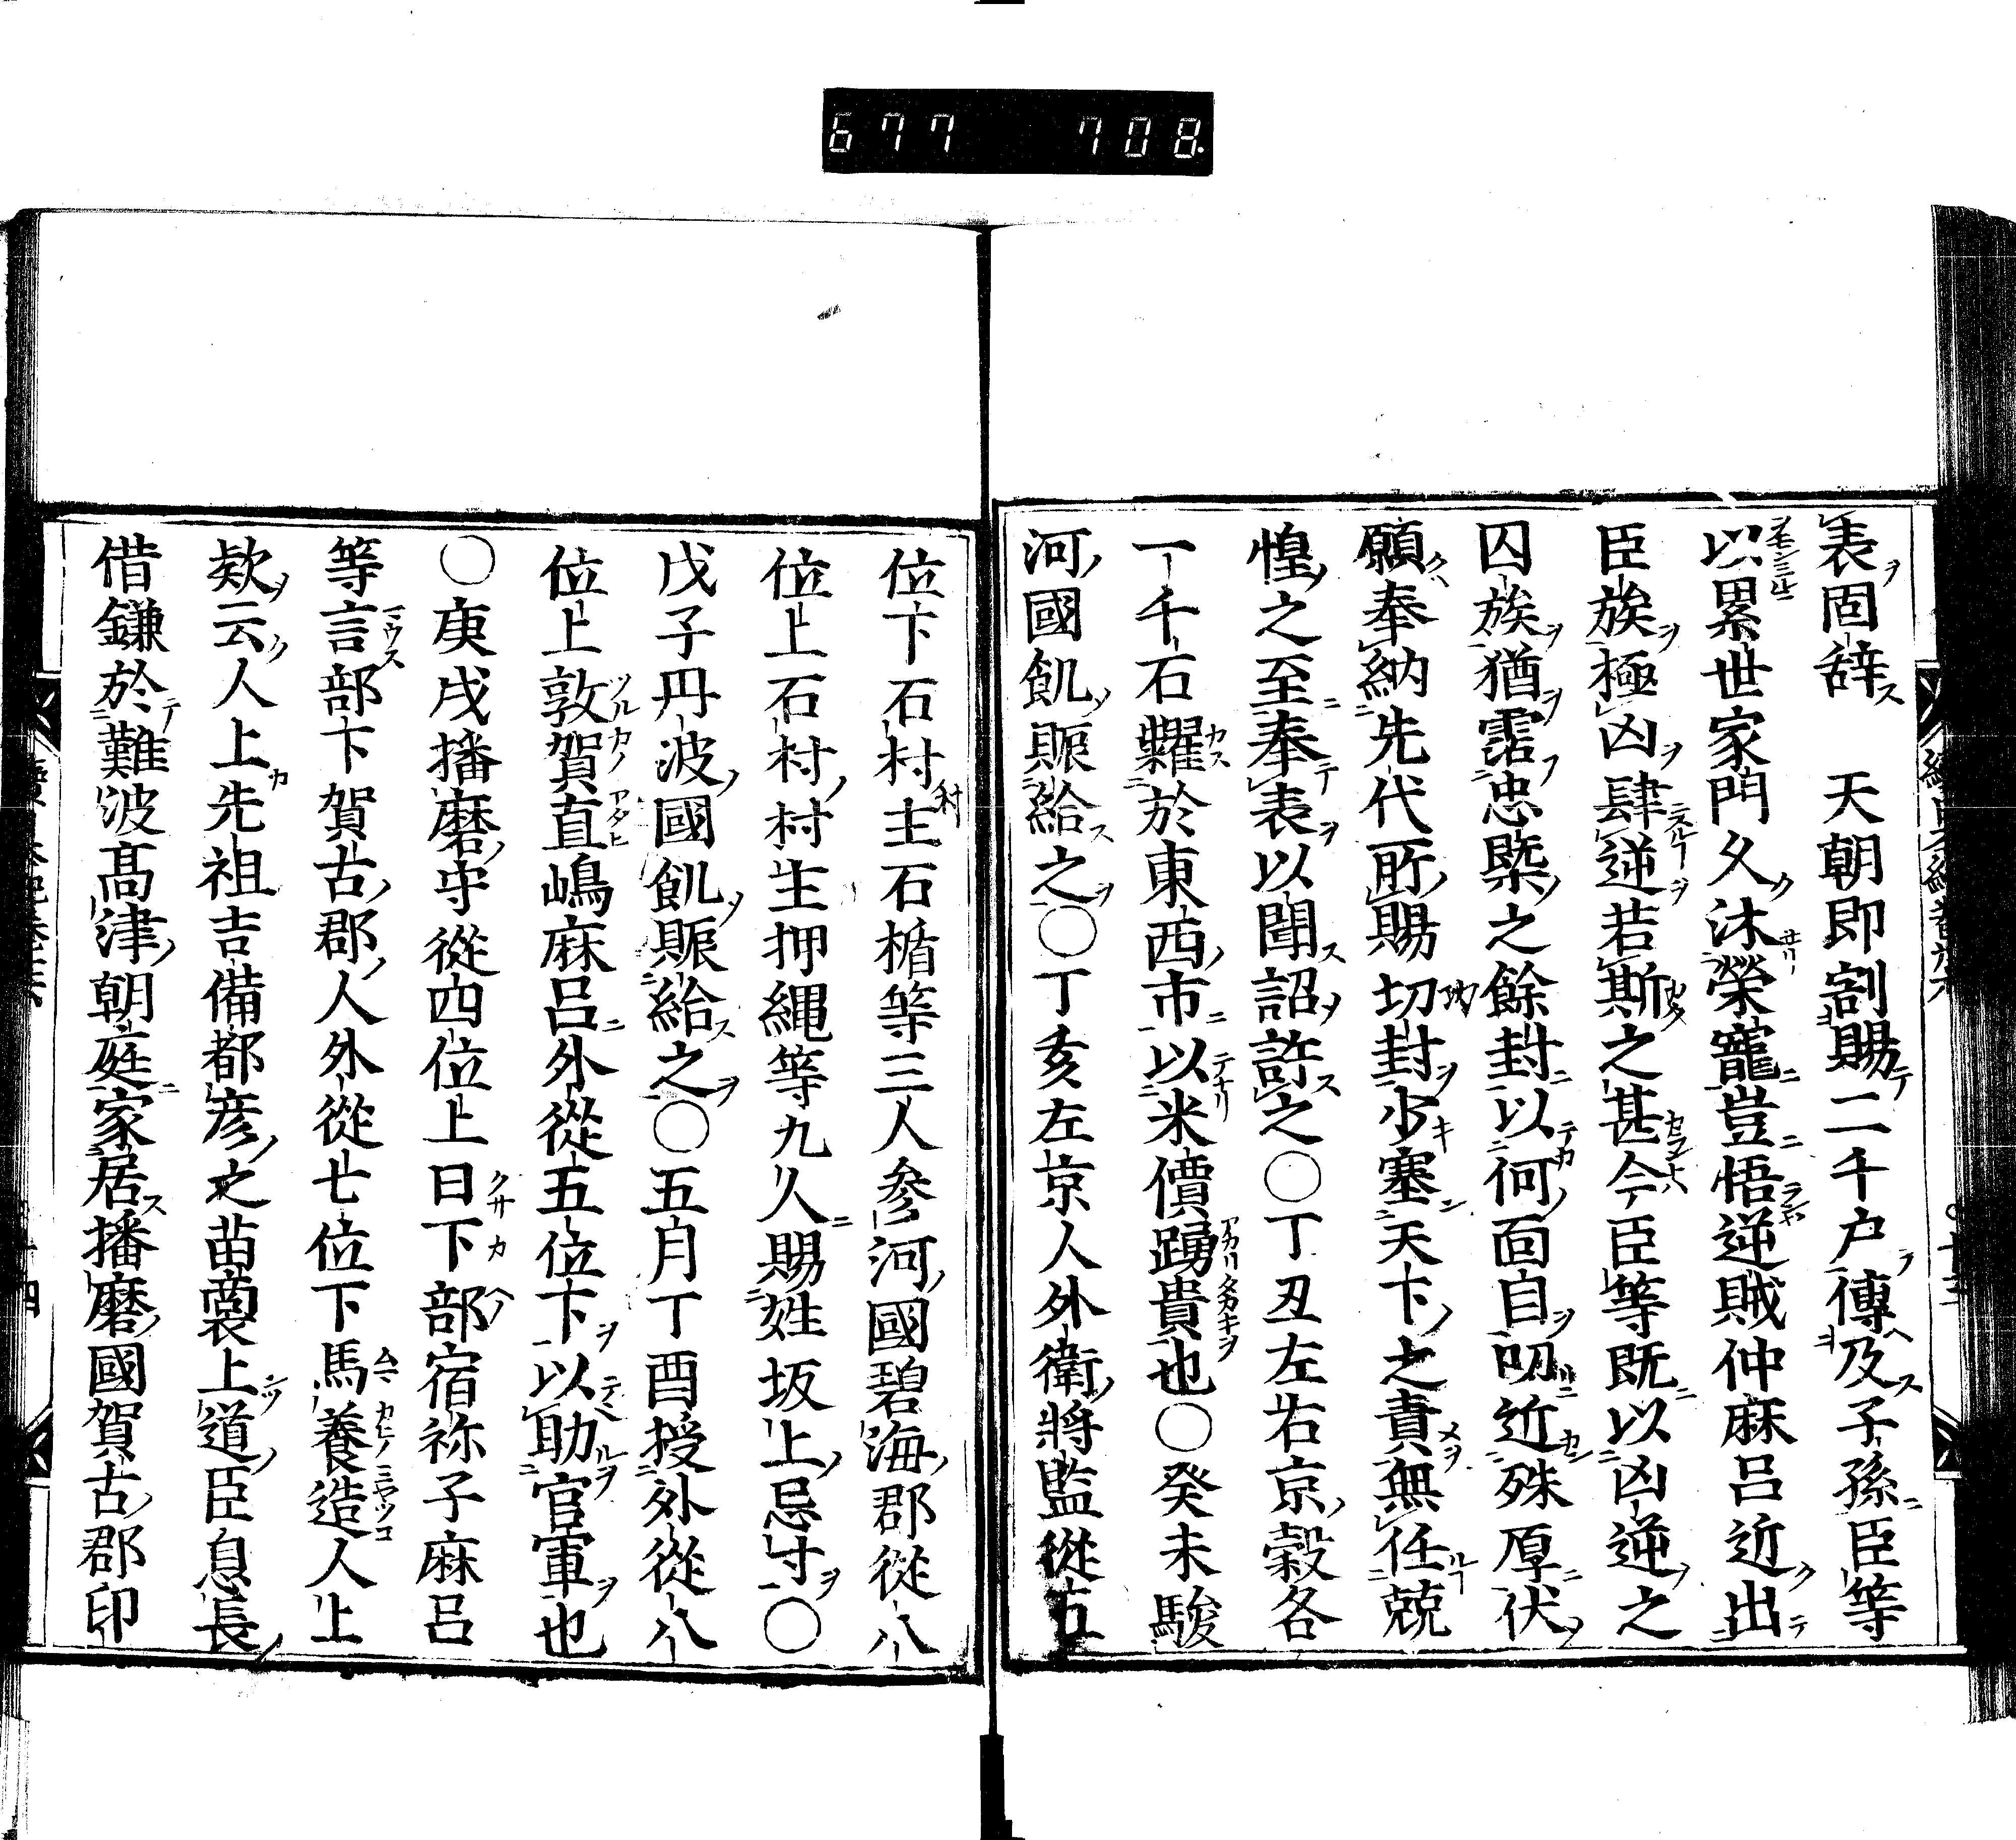 677 708
表固辞 天朝即割賜二千户傳及子孫臣等
以累世家門久沐榮寵豈悟逆賊仲麻呂近出
臣族極凶肆逆若斯之甚今臣等既以凶逆之
囚族猶霑忠槩之餘封以何面自叨近殊厚伏
願奉納先代所賜切封少塞天下之責無任兢
惶之至奉表以聞詔許之○丁丑左右京穀各
一千石糶於東西市以米價踴貴也○癸未駿
河國飢賑給之○丁亥左京人外衛將監從五
位下石村主石楯等三人参河國碧海郡從八
位上石村村主押縄等九人賜姓坂上忌寸○
戊子丹波國飢賑給之○五月丁酉授外從八
位上敦賀直嶋麻呂外從五位下以助官軍也
○庚戌播磨守從四位上日下部宿祢子麻呂
等言部下賀古郡人外從七位下馬養造人上
欵云人上先祖吉備都彦之苗裔上道臣息長
借鎌於難波髙津朝庭家居播磨國賀古郡印